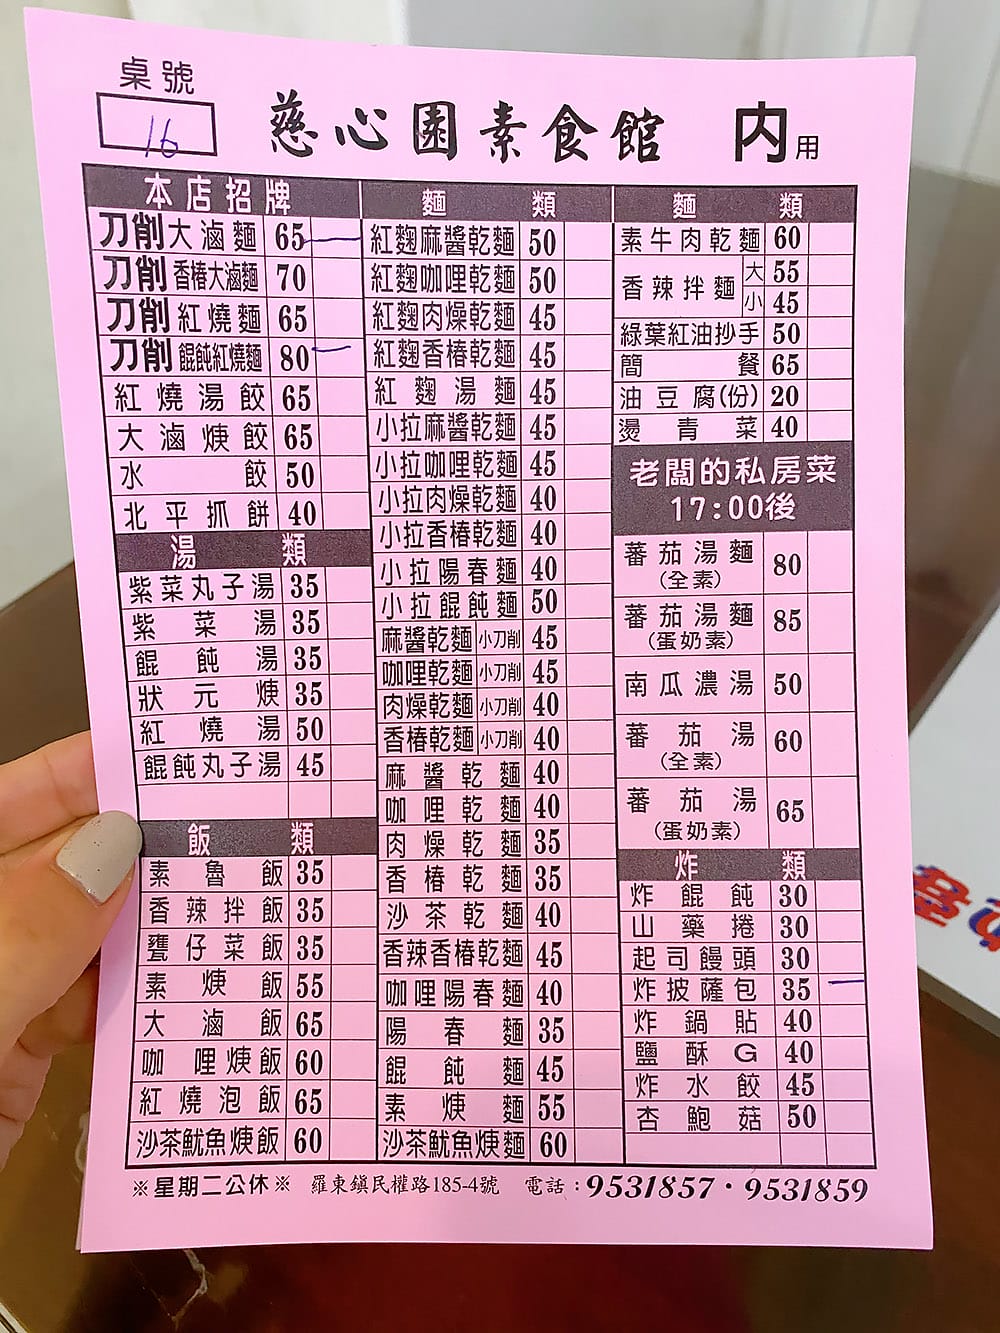 桌號
16
慈心園素食館 內用
本店招牌
刀削大滷麵 65
刀削香椿大滷麵 70
刀削紅燒麵 65
刀削餛飩紅燒麵 80
紅燒湯餃 65
大滷焿餃 65
水餃 50
北平抓餅 40
湯類
紫菜丸子湯 35
紫菜湯 35
餛飩湯 35
狀元焿 35
紅燒湯 50
餛飩丸子湯 45
飯類
素魯飯 35
香辣拌飯 35
甕仔菜飯 35
素焿飯 55
大滷飯 65
咖哩焿飯 60
紅燒泡飯 65
沙茶魷魚焿飯 60
麵類
紅麴麻醬乾麵 50
紅麴咖哩乾麵 50
紅麴肉燥乾麵 45
紅麴香椿乾麵 45
紅麴湯麵 45
小拉麻醬乾麵 45
小拉咖哩乾麵 45
小拉肉燥乾麵 40
小拉香椿乾麵 40
小拉陽春麵 40
小拉餛飩麵 50
麻醬乾麵 小刀削 45
咖哩乾麵 小刀削 45
肉燥乾麵 小刀削 40
香椿乾麵 小刀削 40
麻醬乾麵 40
咖哩乾麵 40
肉燥乾麵 35
香椿乾麵 35
沙茶乾麵 40
香辣香椿乾麵 45
咖哩陽春麵 40
陽春麵 35
餛飩麵 45
素焿麵 55
沙茶魷魚焿麵 60
麵類
素牛肉乾麵 60
香辣拌麵 大 55
小 45
綠葉紅油抄手 50
簡餐 65
油豆腐(份) 20
燙青菜 40
老闆的私房菜
17:00後
蕃茄湯麵 80
(全素)
蕃茄湯麵 85
(蛋奶素)
南瓜濃湯 50
蕃茄湯 60
(全素)
蕃茄湯 65
(蛋奶素)
炸類
炸餛飩 30
山藥捲 30
起司饅頭 30
炸披薩包 35
炸鍋貼 40
鹽酥G 40
炸水餃 45
杏鮑菇 50
※星期二公休※ 羅東鎮民權路185-4號 電話：9531857・9531859